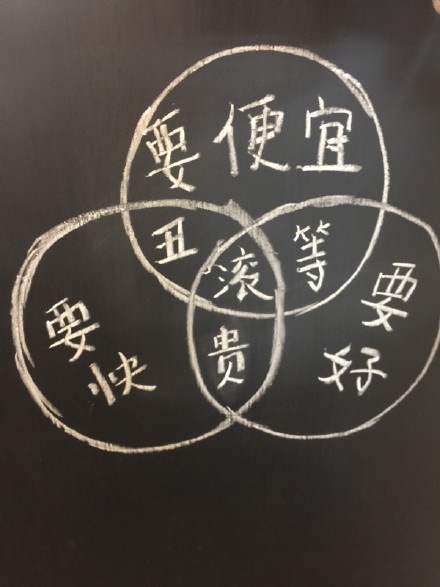 要便宜
丑
滚
等
要快
贵
要好